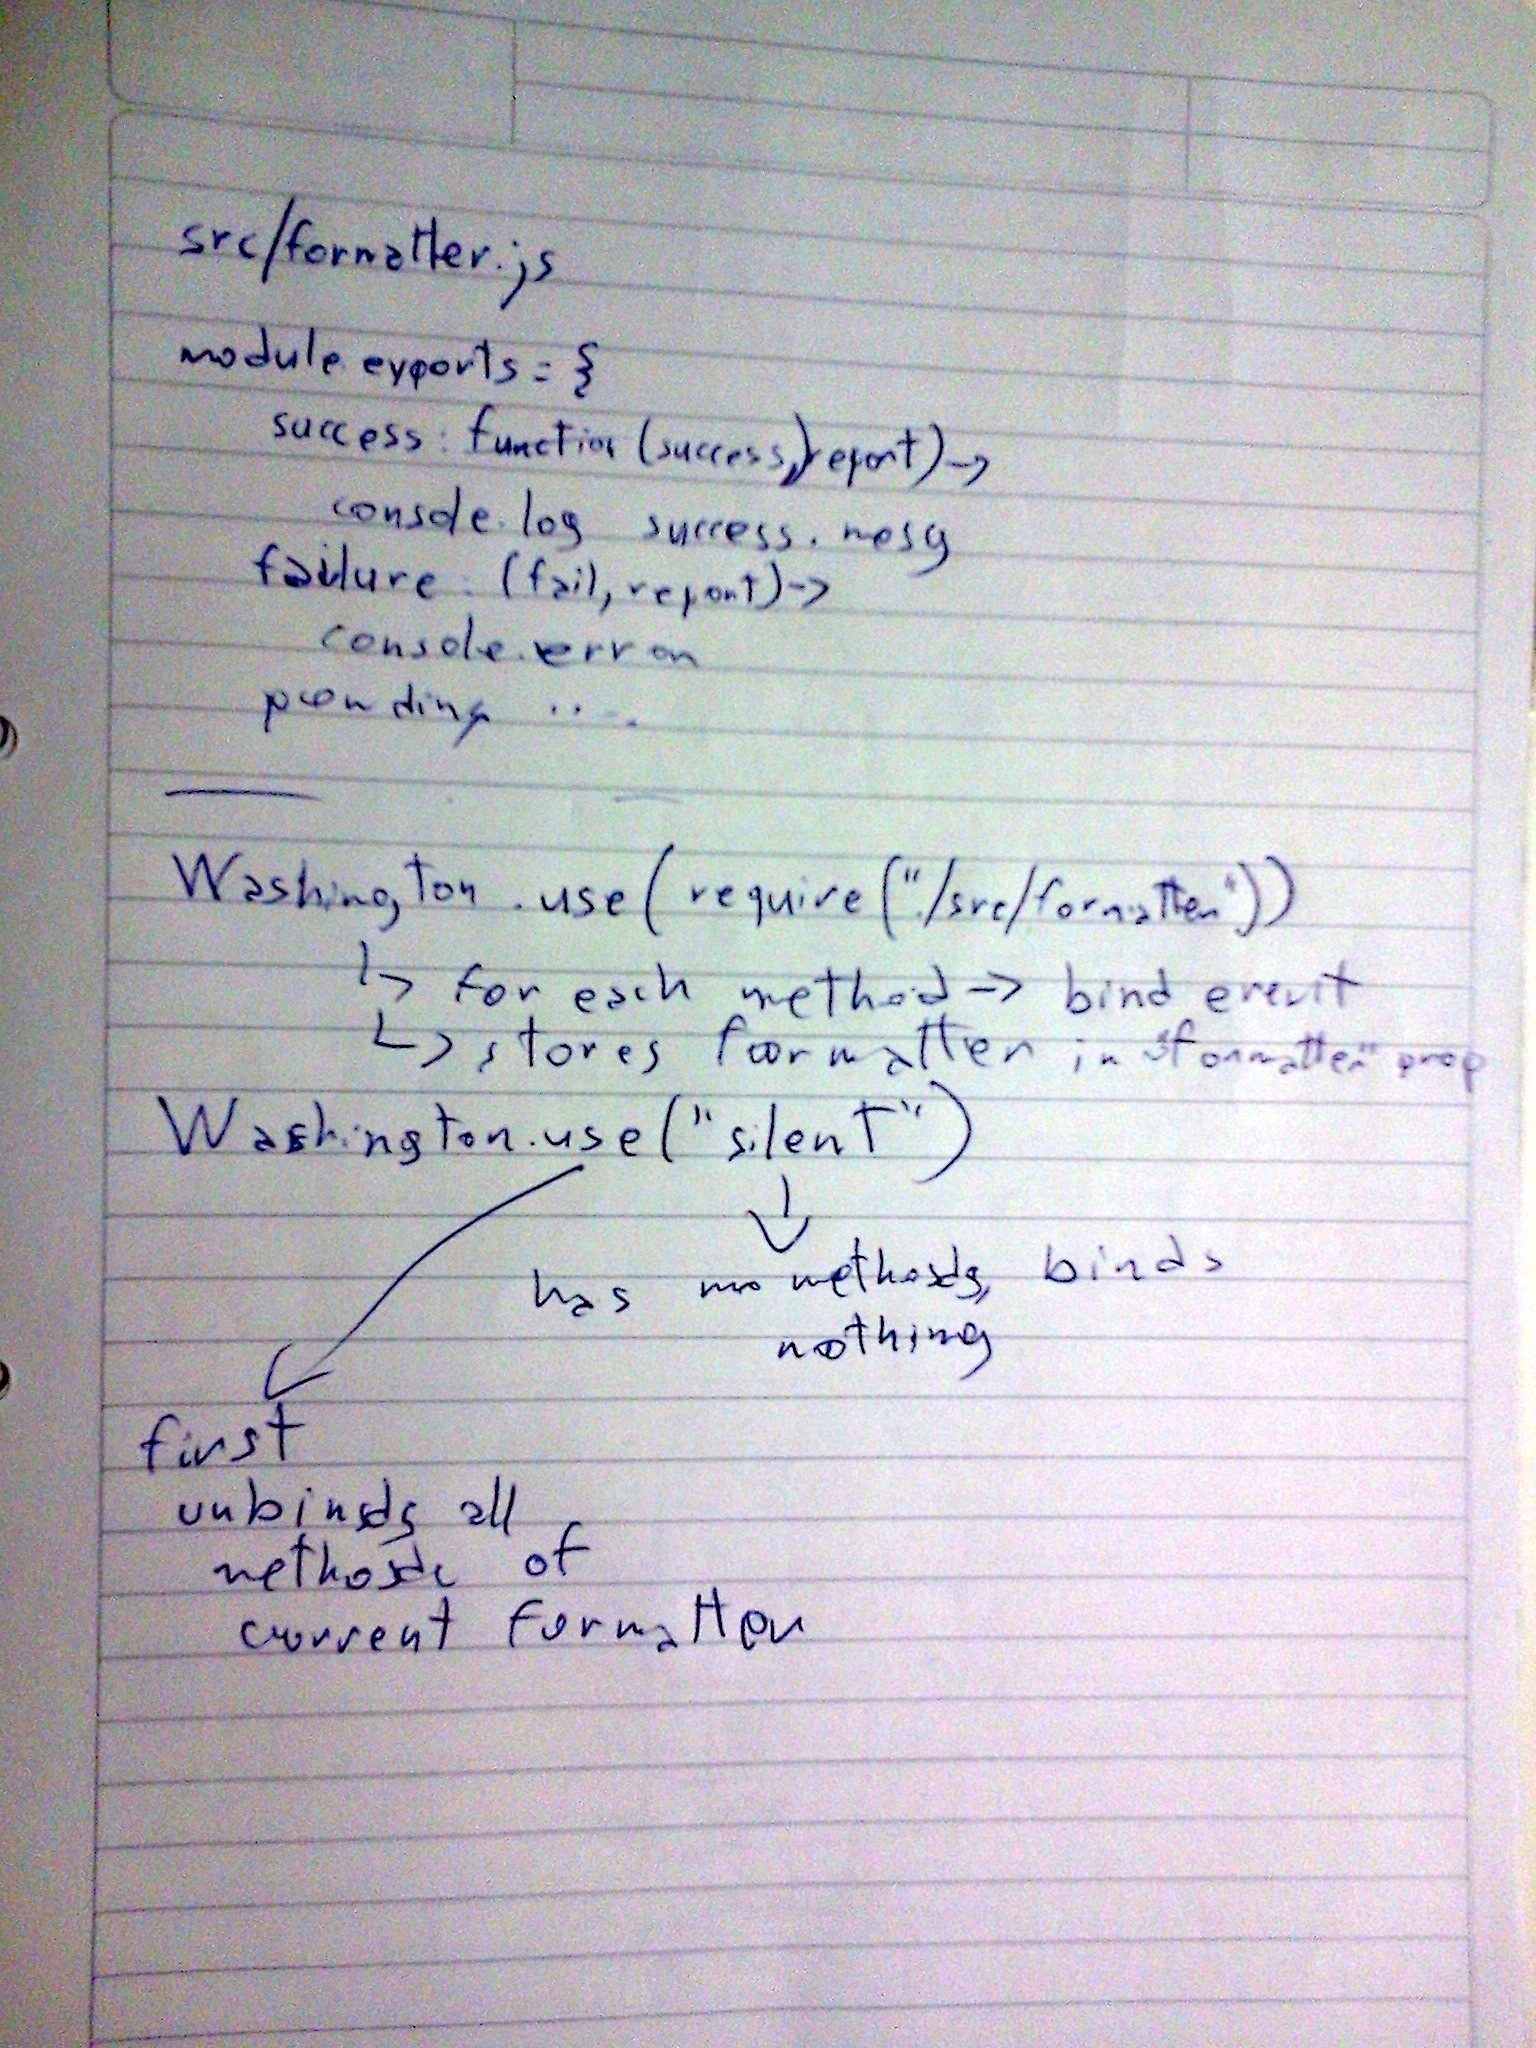 src/formatter.js
module.exports = {
success: function (success, report) ->
console.log success.mesg
failure: (fail, report) ->
console.error
pending ....
Washington.use(require("./src/formatter"))
↳ for each method -> bind event
↳ stores formatter in "formatter" prop
Washington.use("silent")
has no methods, binds
nothing
first
unbinds all
methods of
current formatter